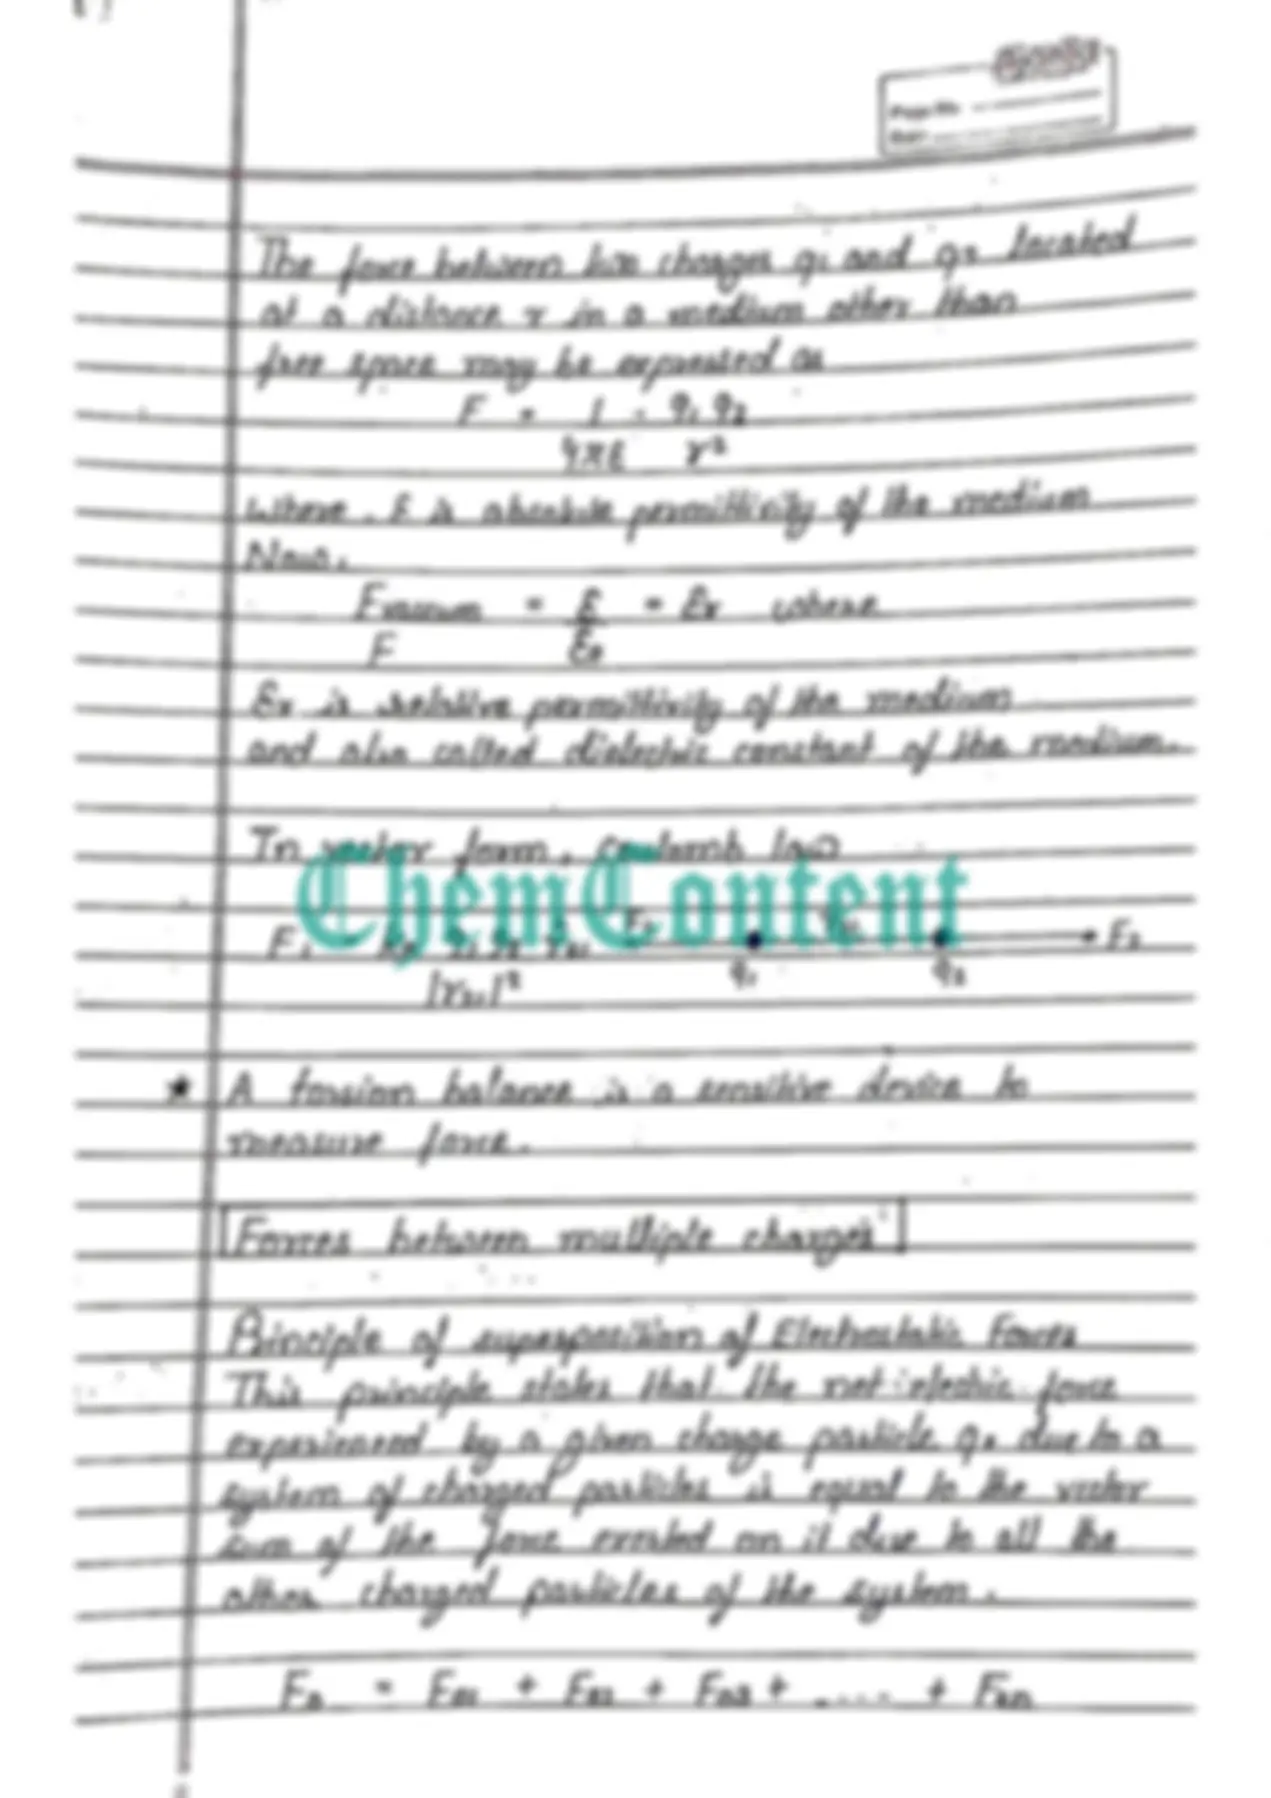 Page No.
Date
The force between two charges q1 and q2 located
at a distance r in a medium other than
free space may be expressed as
F = 1 . q1 q2
4πε r²
where, ε is absolute permittivity of the medium
Now,
Fvacuum = ε = εr where
F ε0
εr is relative permittivity of the medium
and also called dielectric constant of the medium.
In vector form, coulomb law
ChemContent
F2
|r21|²
q1 q2
★ A torsion balance is a sensitive device to
measure force.
Forces between multiple charges
Principle of superposition of Electrostatic Forces
This principle states that the net electric force
experienced by a given charge particle q0 due to a
system of charged particles is equal to the vector
sum of the force exerted on it due to all the
other charged particles of the system.
F0 = F01 + F02 + F03 + .... + F0n